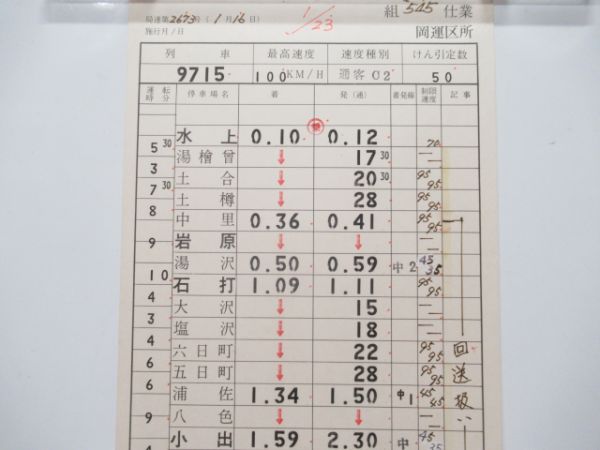 組 545 仕業
局達第2673号(1月16日)
1/23
施行 月/日
岡運区所
列 車 最高速度 速度種別 けん引定数
9715 100KM/H 通客C2 50
運転時分 停車場名 着 発(通) 着発線 制限速度 記事
水上 0.10 0.12 70
5 30
湯檜曾 ↓ 17 30
3
土合 ↓ 20 30 95 95
7 30
土樽 ↓ 28 95 95
8
中里 0.36 0.41 95 95
岩原 ↓ ↓
9
湯沢 0.50 0.59 中2 45 35
10
石打 1.09 1.11 95 95
4
大沢 ↓ 15
3
塩沢 ↓ 18
4
六日町 ↓ 22 95 95 回
6
五日町 ↓ 28 95 95 送
6
浦佐 1.34 1.50 中1 45 45 扱
八色 ↓ ↓
9
小出 1.59 2.30 中 45 35
4